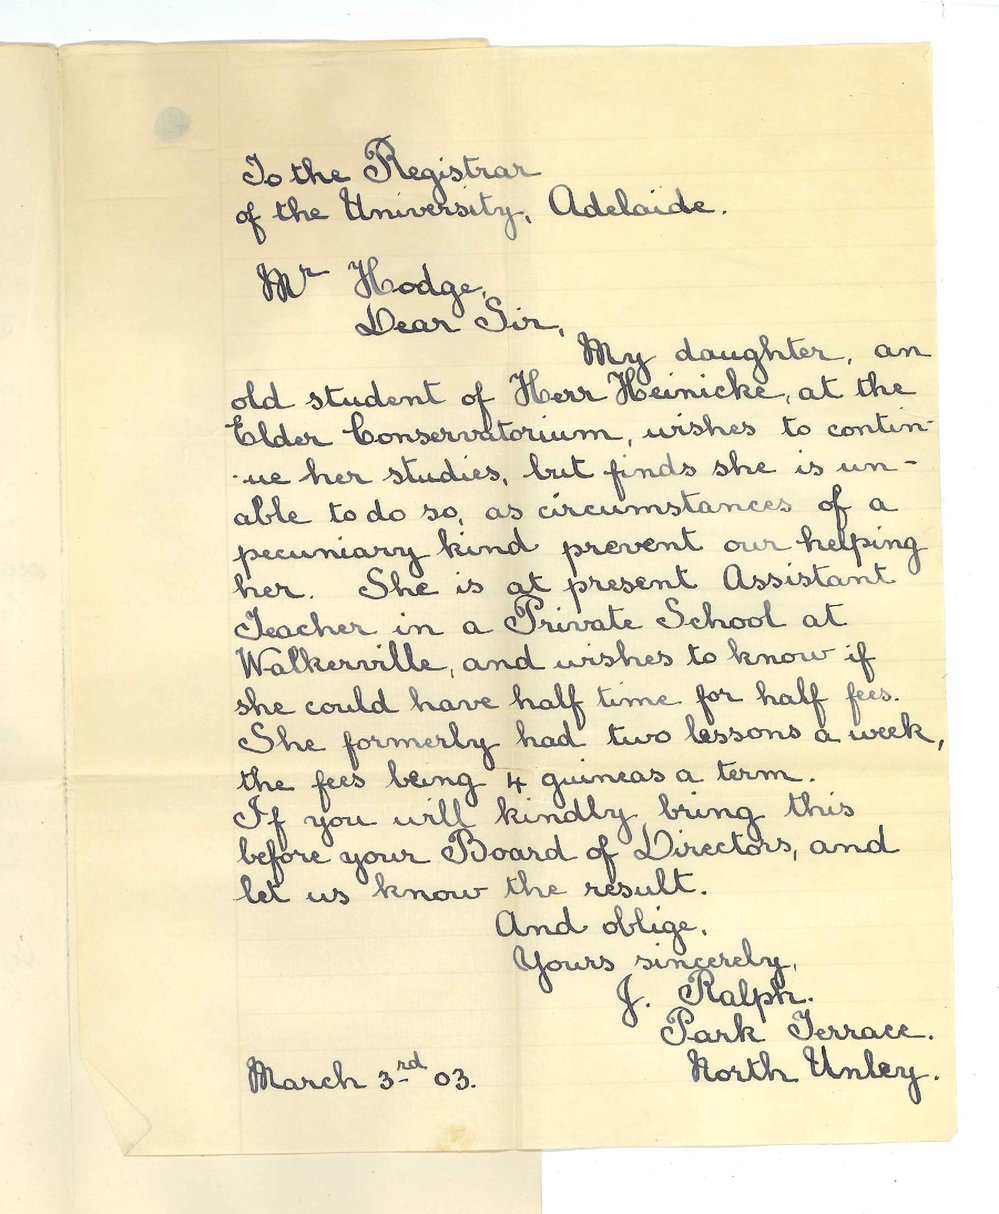 To the Registrar
of the University, Adelaide.
Mr Hodge,
Dear Sir,
My daughter, an
old student of Herr Heinicke, at the
Elder Conservatorium, wishes to contin-
-ue her studies, but finds she is un-
able to do so, as circumstances of a
pecuniary kind prevent our helping
her. She is at present Assistant
Teacher in a Private School at
Walkerville, and wishes to know if
she could have half time for half fees.
She formerly had two lessons a week,
the fees being 4 guineas a term.
If you will kindly bring this
before your Board of Directors, and
let us know the result.
And oblige,
Yours sincerely,
J. Ralph.
Park Terrace.
North Unley.
March 3rd 03.